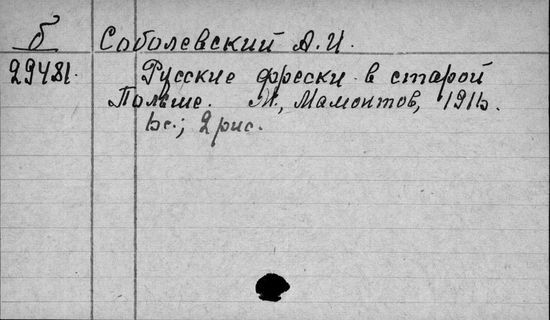 б Соболевский А.И.
29481. Русские фрески в старой
Польше. М., Мамонтов, 1916.
6с.; 2 рис.